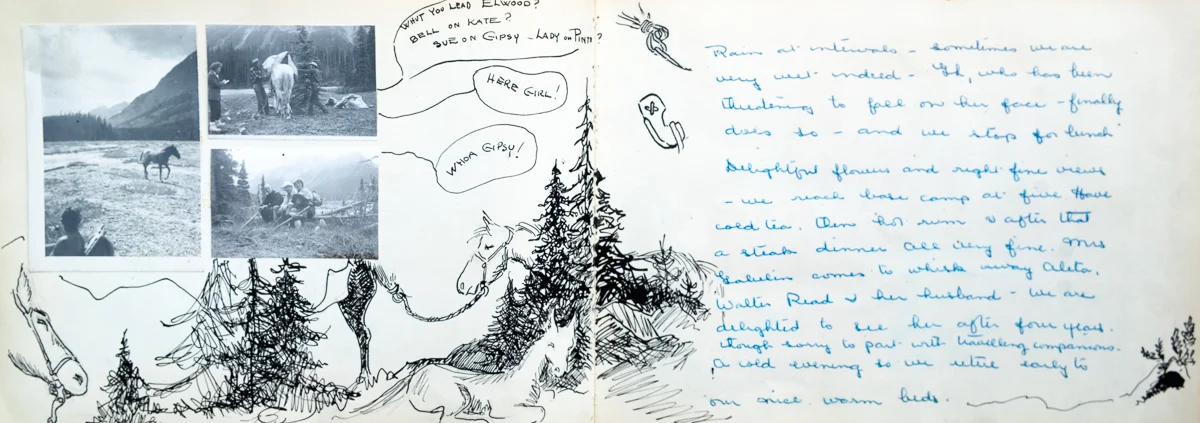 WHUT YOU LEAD ELWOOD?
BELL ON KATE?
SUE ON GIPSY - LADY ON PINTO?
HERE GIRL!
WHOA GIPSY!
Rain at intervals - sometimes we are
very wet indeed - who has been
threatening to fall on her face - finally
does so - and we stop for lunch
Delightful flowers and right fine views
- we reach base camp at five Have
cold tea, then hot rum & after that
a steak dinner all very fine. Mrs
comes to whisk away Aleta,
Walter Read & her husband - we are
delighted to see her after four years.
though sorry to part with travelling companions.
A cold evening so we retire early to
our nice warm beds.